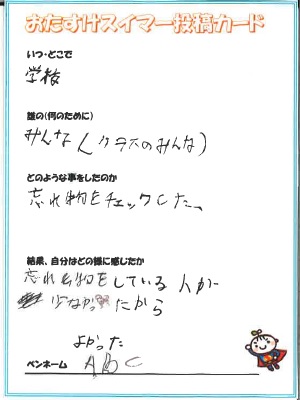 おたすけスイマー投稿カード
いつ・どこで
学校
誰の(何のために)
みんな(クラスのみんな)
どのような事をしたのか
忘れ物をチェックした、
結果、自分はどの様に感じたか
忘れ物をしている人が
少なかったから
よかった
ペンネーム ABC